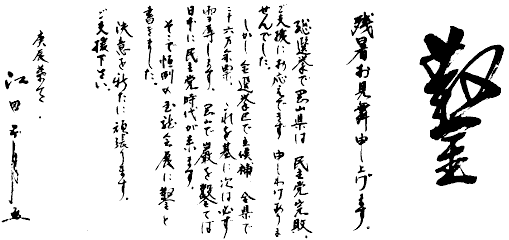 鑿
残暑お見舞申し上げます。
総選挙で岡山県は 民主党完敗。
ご支援にお応えできず 申しわけありま
せんでした。
しかし 全選挙区で立候補 全県で
三十六万余票。これを基に次は必ず
雪辱します。岡山で巌を鑿てば
日本に民主党時代が来ます。
そこで恒例の玉龍会展に鑿と
書きました。
決意を新たに頑張ります。
ご支援下さい。
庚辰
江田五月